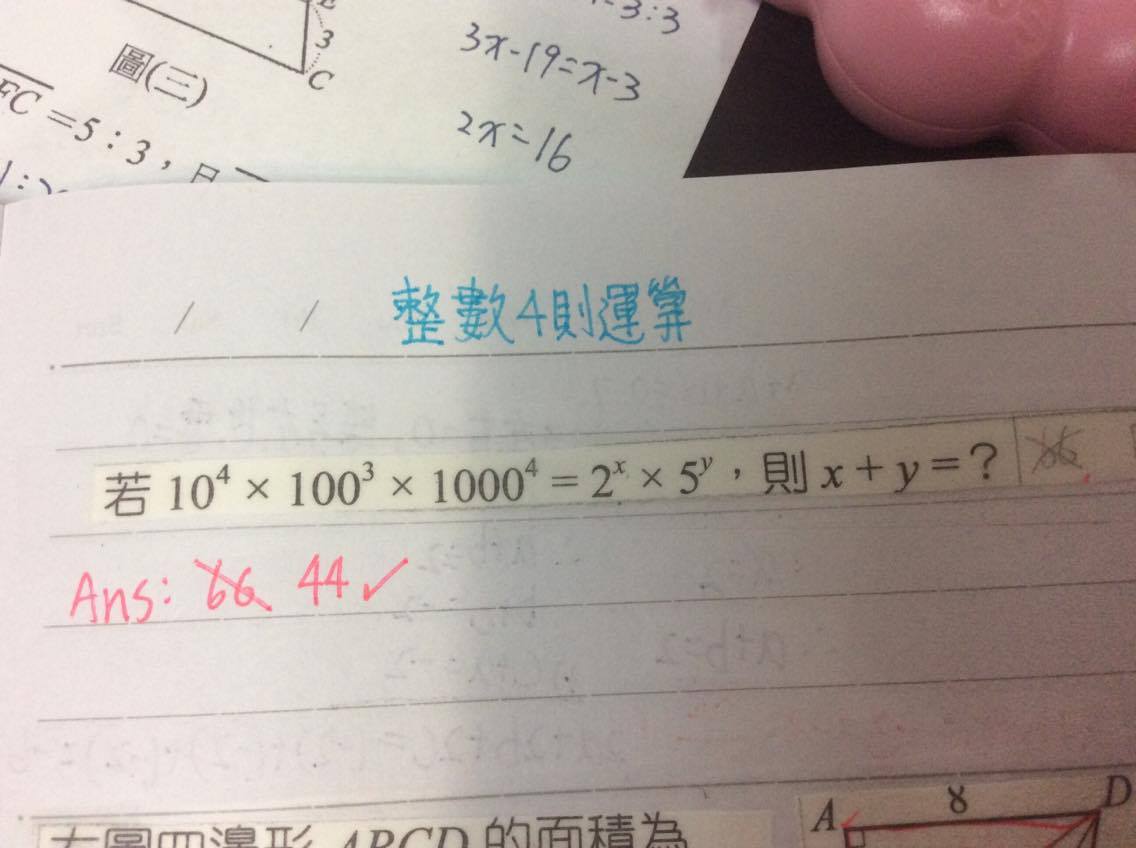 3
C
圖(三)
=5:3，
3x-19=x-3
2x=16
整數4則運算
若 10⁴ × 100³ × 1000⁴ = 2ˣ × 5ʸ，則 x + y = ？
Ans: 66 44 ✓
右圖四邊形 ABCD 的面積為
A 8 D